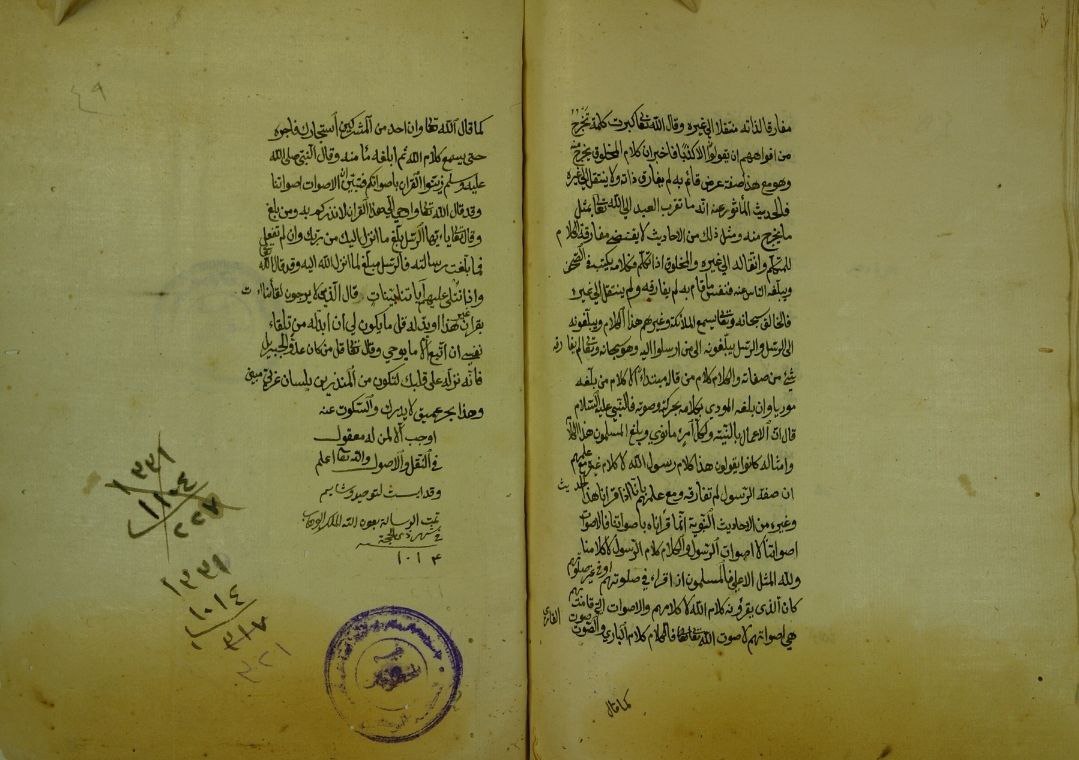 مفارقا لذاته منتقلا الى غيره وقال الله تعا كبرت كلمة تخرج
من افواههم ان يقولون الا كذبا فاخبر ان كلام المخلوق يخرج منه
وهو مع هذا صفة عرض قائم به لم يفارق ذاته ولا ينتقل الى غيره
فالحديث المأثور عنه انه ما تقرب العبد الى الله تعا بمثل
ما يخرج منه ومثل ذلك من الاحاديث لا يقتضى مفارقة الكلام
للمتكلم وانتقاله الى غيره والمخلوق اذا تكلم فكلامه يكتب فى
ويبلغه الناس عنه فنفس ما قام به لم يفارقه ولم ينتقل الى غيره
فالخالق سبحانه وتعا يسمع الملائكة وغيرهم هذا الكلام ويبلغونه
الى الرسل والرسل يبلغونه الى من ارسلوا اليه وهو سبحانه وتعا لم يفارقه
شئ من صفاته والكلام كلام من قاله مبتداء لا كلام من بلغه
موديا وان بلغه المودي بكلامه بحركته وصوته فالنبي عليه السلام
قال انما الاعمال بالنية ولكل امرء ما نوى وبلغ المسلمون هذا الكلام
وامثاله كانوا يقولون هذا كلام رسول الله لا كلام غيره مع علمهم
ان صفة الرسول لم تفارقه ومع علمهم باننا اذا قرانا هذا الحديث
وغيره من الاحاديث النبوية انما قراناه باصواتنا فالاصوات
اصواتنا لا اصوات الرسول والكلام كلام الرسول لا كلامنا
ولله المثل الاعلى فالمسلمون اذا اقراء فى صلوتهم او فى غير صلوتهم
كان الذى يقرؤنه كلام الله لا كلامهم والاصوات التى قامت بهم
هى اصواتهم لا صوت الله تعا فالكلام كلام البارى والصوت صوت القارى
كما قال
٤٩
كما قال الله تعا وان احد من المشركين استجارك فاجره
حتى يسمع كلام الله ثم ابلغه مأمنه وقال النبى صلى الله
عليه وسلم زينوا القران باصواتكم فتبين ان الاصوات اصواتنا
وقد قال الله تعا واوحي الى هذا القران لانذركم به ومن بلغ
وقال تعا يا ايها الرسل بلغ ما انزل اليك من ربك وان لم تفعل
فما بلغت رسالته فالرسل مبلغ لما انزل الله اليه وقد قال الله تعا
واذا تتلى عليهم آياتنا بينات قال الذين لا يرجون لقاءنا ائت
بقران غير هذا او بدله قل ما يكون لى ان ابدله من تلقاء
نفسى ان اتبع الا ما يوحى وقال تعا قل من كان عدوا لجبريل
فانه نزله على قلبك لتكون من المنذرين بلسان عربى مبين
وهذا بحر عميق لا يدرك والسكوت عنه
اوجب الا لمن له معقول
فى النقل والاصول والله تعا اعلم
تمت الرسالة بعون الله الملك الوهاب
فى شهر ذى الحجة
١٠١٤
١٣٣١
١١٠٤
٢٢٧
١٣٣١
١٠١٤
٣١٧